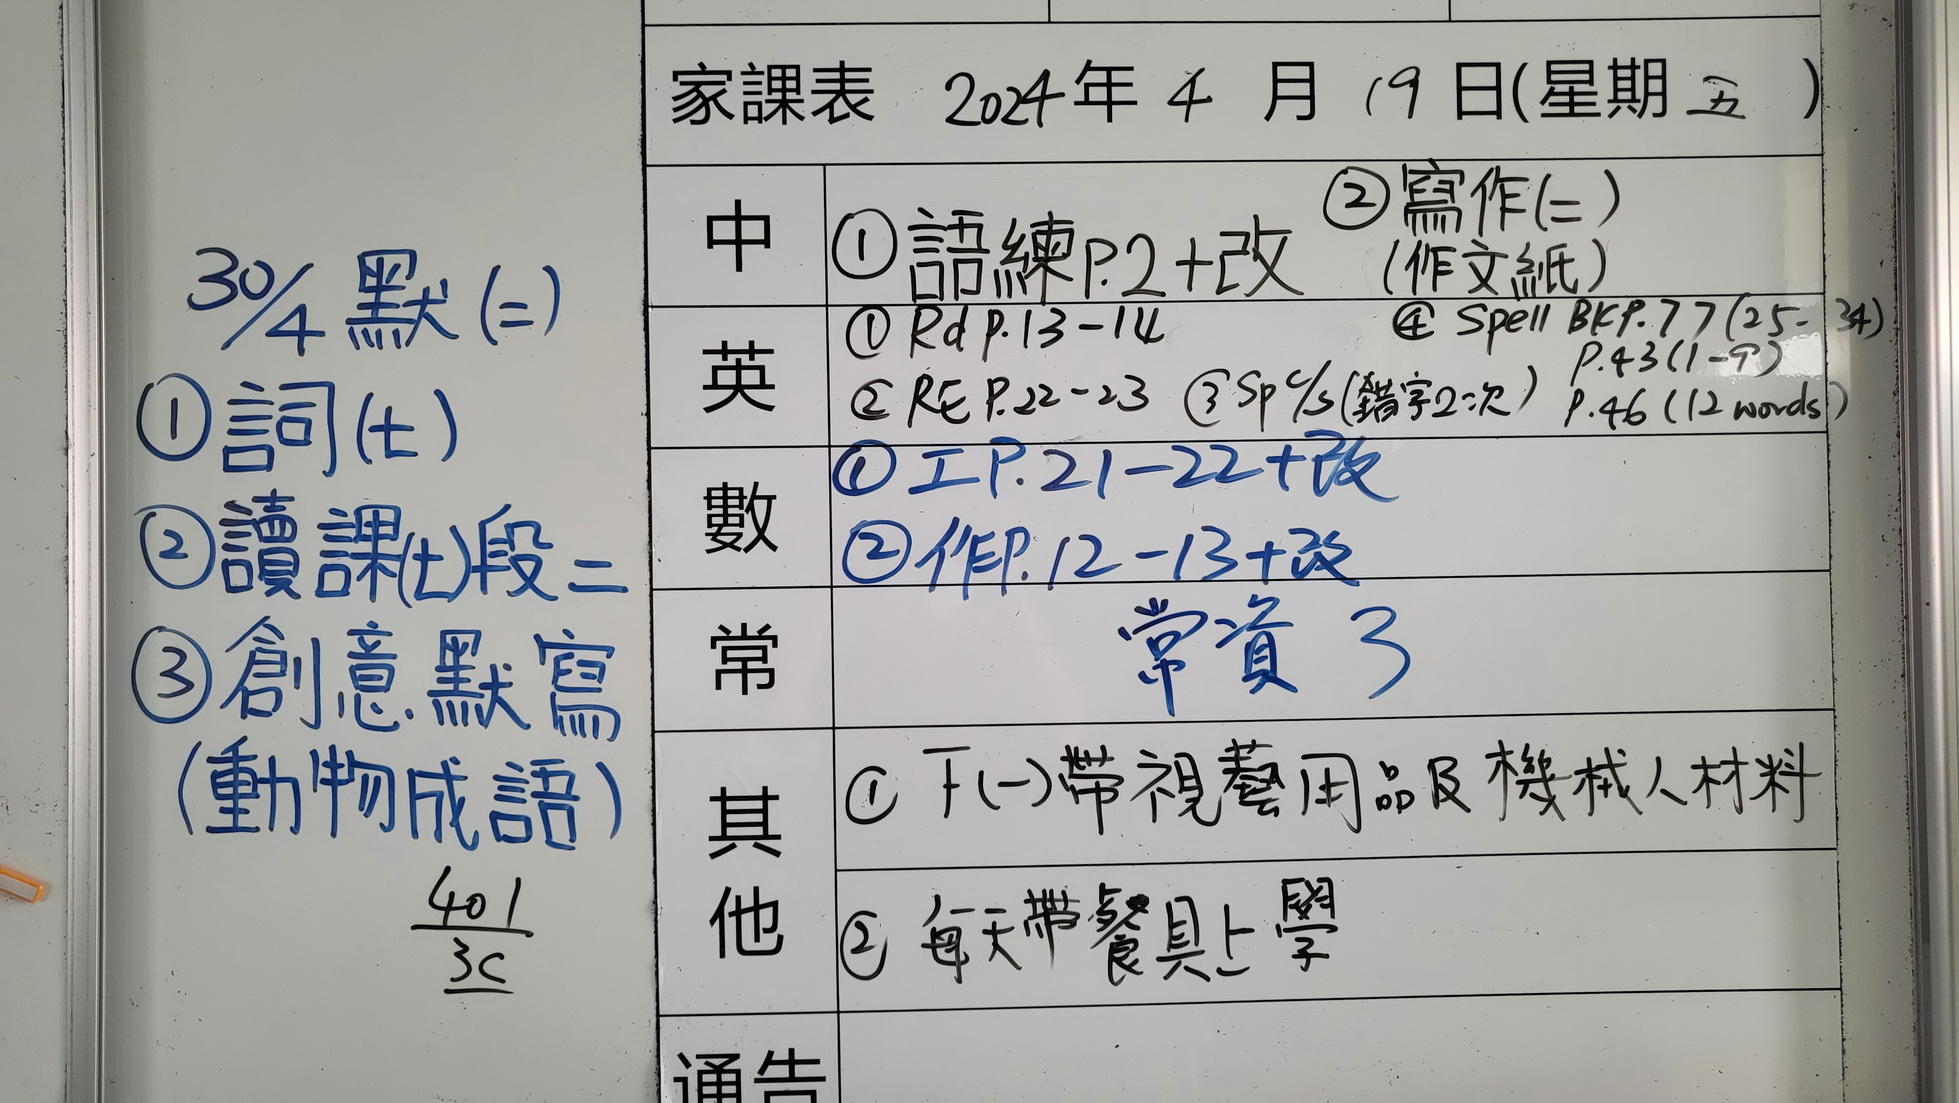 家課表 2024年4月19日(星期五)
中
①語練P.2+改
②寫作(二)
(作文紙)
英
①Rd P.13-14
②RE P.22-23
③Sp c/s(錯字2次)
④Spell BK P.77(25-34)
P.43(1-9)
P.46(12 words)
數
①工P.21-22+改
②作P.12-13+改
常
常資3
其他
①下(一)帶視藝用品及機械人材料
②每天帶餐具上學
通告
30/4默(二)
①詞(七)
②讀課(七)段二
③創意默寫
(動物成語)
401
3C